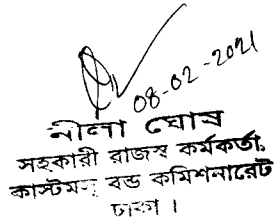 08-02-2021
নীলা ঘোষ
সহকারী রাজস্ব কর্মকর্তা,
কাস্টমস্ বন্ড কমিশনারেট
ঢাকা।